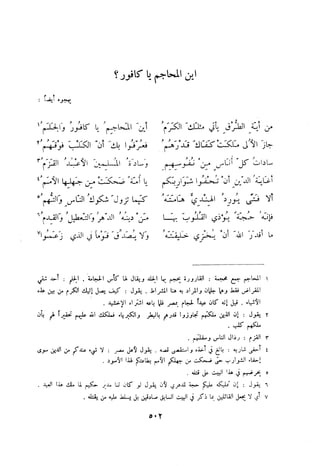 اين المحاجم يا كافور ؟
يهجوه أيضاً :
مِن أيّةِ الطُّرْقِ يأتي مثلَكَ الكَرَمُ أينَ المَحاجِمُ يا كافورُ وَالجَلَمُ ١
جازَ الأُلى مَلَكَتْ كَفّاكَ قَدْرَهُمُ فعُرّفُوا بكَ أنّ الكَلْبَ فوْقَهُمُ ٢
ساداتُ كلّ أُناسٍ مِنْ نُفُوسِهِمِ وسادَةُ المُسلِمينَ الأعْبُدُ القَزَمُ ٣
أغايَةُ الدّينِ أنْ تُحْفُوا شَوَارِبَكم يا أُمّةً ضَحكَتْ مِن جَهلِها الأُمَمُ ٤
ألا فَتًى يُورِدُ الهِنْديَّ هامَتَهُ كَيما تزولَ شكوكُ النّاسِ وَالتُّهمُ ٥
فإنّهُ حُجّةٌ يُؤذي القُلُوبَ بهَا مَنْ دينُهُ الدّهرُ وَالتّعطيلُ وَالقِدَمُ ٦
ما أقدَرَ اللهَ أنْ يُخْزِي خَليقَتَهُ وَلا يُصَدِّقَ قَوْماً في الذي زَعَمُوا ٧
١ المحاجم جمع محجمة : القارورة يحجم بها الجلد ويقال لها كأس الحجامة . الجلم : أحد شقي
المقراض فقط وهما جلمان والمراد به هنا المشراط . يقول : كيف يصل إليك الكرم من بين هذه
الأشياء . قيل إنه كان عبداً لحجام بمصر فلما باعه اشتراه الإخشيد .
٢ يقول : إن الذين ملكتهم تجاوزوا قدرهم بالبطر والكبرياء فملكك الله عليهم تحقيراً لهم بأن
ملكهم كلب .
٣ القزم : رذال الناس وسفلتهم .
٤ أحفى شاربه : بالغ في أخذه واستقصى قصه . يقول لأهل مصر : لا شيء عندكم من الدين سوى
إحفاء الشوارب حتى ضحكت من جهلكم الأمم بطاعتكم لهذا الأسود .
٥ يحرضهم في هذا البيت على قتله .
٦ يقول : إن تمليكه عليكم حجة للدهري لأن يقول لو كان لنا مدبر حكيم لما ملك هذا العبد .
٧ أي لا يجعل القائلين بما ذكر في البيت السابق صادقين بل يسلط عليه من يقتله .
٥٠٢